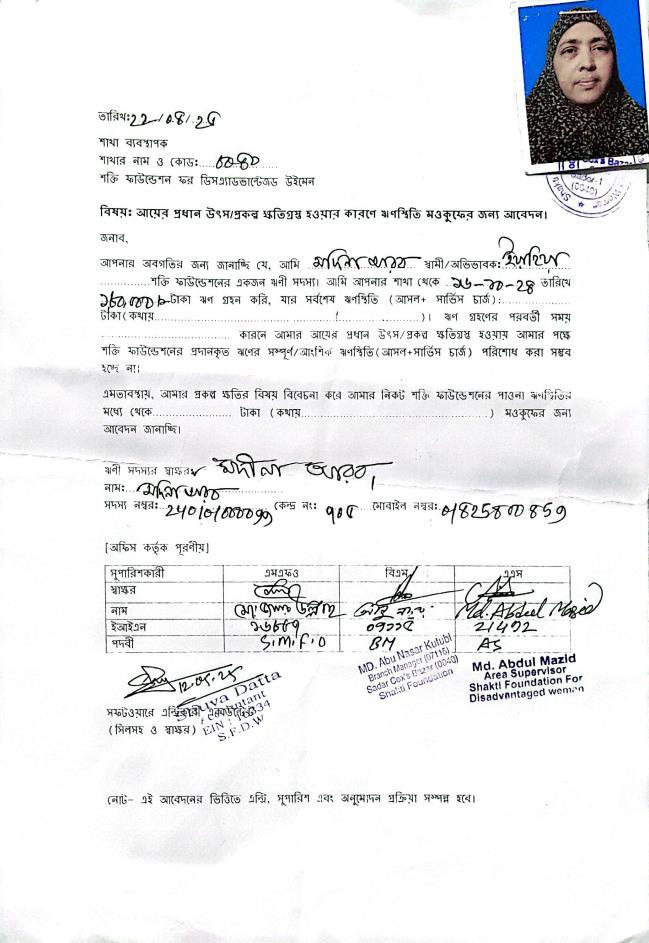 তারিখ: 22/08/25
শাখা ব্যবস্থাপক
শাখার নাম ও কোড:..... 0040
শক্তি ফাউন্ডেশন ফর ডিসএ্যাডভান্টেজড উইমেন
Cox's Bazar
Sadar-1
(0040)
বিষয়: আয়ের প্রধান উৎস/প্রকল্প ক্ষতিগ্রস্থ হওয়ার কারণে ঋণস্থিতি মওকুফের জন্য আবেদন।
জনাব,
আপনার অবগতির জন্য জানাচ্ছি যে, আমি ..মদিনা আরব.. স্বামী/অভিভাবক:
....................শক্তি ফাউন্ডেশনের একজন ঋণী সদস্য। আমি আপনার শাখা থেকে ১৬-১০-২৪ তারিখে
টাকা ঋণ গ্রহন করি, যার সর্বশেষ ঋণস্থিতি (আসল+ সার্ভিস চার্জ):....................
টাকা(কথায়........................................)। ঋণ গ্রহণের পরবর্তী সময়
.............................. কারনে আমার আয়ের প্রধান উৎস/প্রকল্প ক্ষতিগ্রস্থ হওয়ায় আমার পক্ষে
শক্তি ফাউন্ডেশনের প্রদানকৃত ঋণের সম্পূর্ণ/আংশিক ঋণস্থিতি(আসল+সার্ভিস চার্জ) পরিশোধ করা সম্ভব
হচ্ছে না।
এমতাবস্থায়, আমার প্রকল্প ক্ষতির বিষয় বিবেচনা করে আমার নিকট শক্তি ফাউন্ডেশনের পাওনা ঋণস্থিতির
মধ্যে থেকে.................... টাকা (কথায়........................................) মওকুফের জন্য
আবেদন জানাচ্ছি।
ঋণী সদস্যর স্বাক্ষর মদীনা আরব
নাম: মদিনা আরব
সদস্য নম্বর: কেন্দ্র নং: ৭০৫ মোবাইল নম্বর: 01825800859
[অফিস কর্তৃক পূরণীয়]
সুপারিশকারী এমএফও বিএম এএস
স্বাক্ষর
নাম Md. Abdul Mazid
ইআইএন ১৬৮৮৭ ০৭১১৫ 21492
পদবী S.M.F.O BM AS
MD. Abu Nasar Kutubi
Branch Manager (07115)
Sadar Cox's Bazar (0040)
Shakti Foundation
Md. Abdul Mazid
Area Supervisor
Shakti Foundation For
Disadvantaged women
12.05.25
Datta
EIN:
S.F.D.W
সফটওয়ারে এন্ট্রিকারী
(সিলসহ ও স্বাক্ষর)
নোট- এই আবেদনের ভিত্তিতে এন্ট্রি, সুপারিশ এবং অনুমোদন প্রক্রিয়া সম্পন্ন হবে।